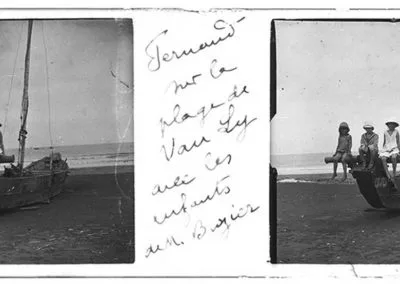 Fernand
sur la
plage de
Van Ly
avec les
enfants
de M. Bozier